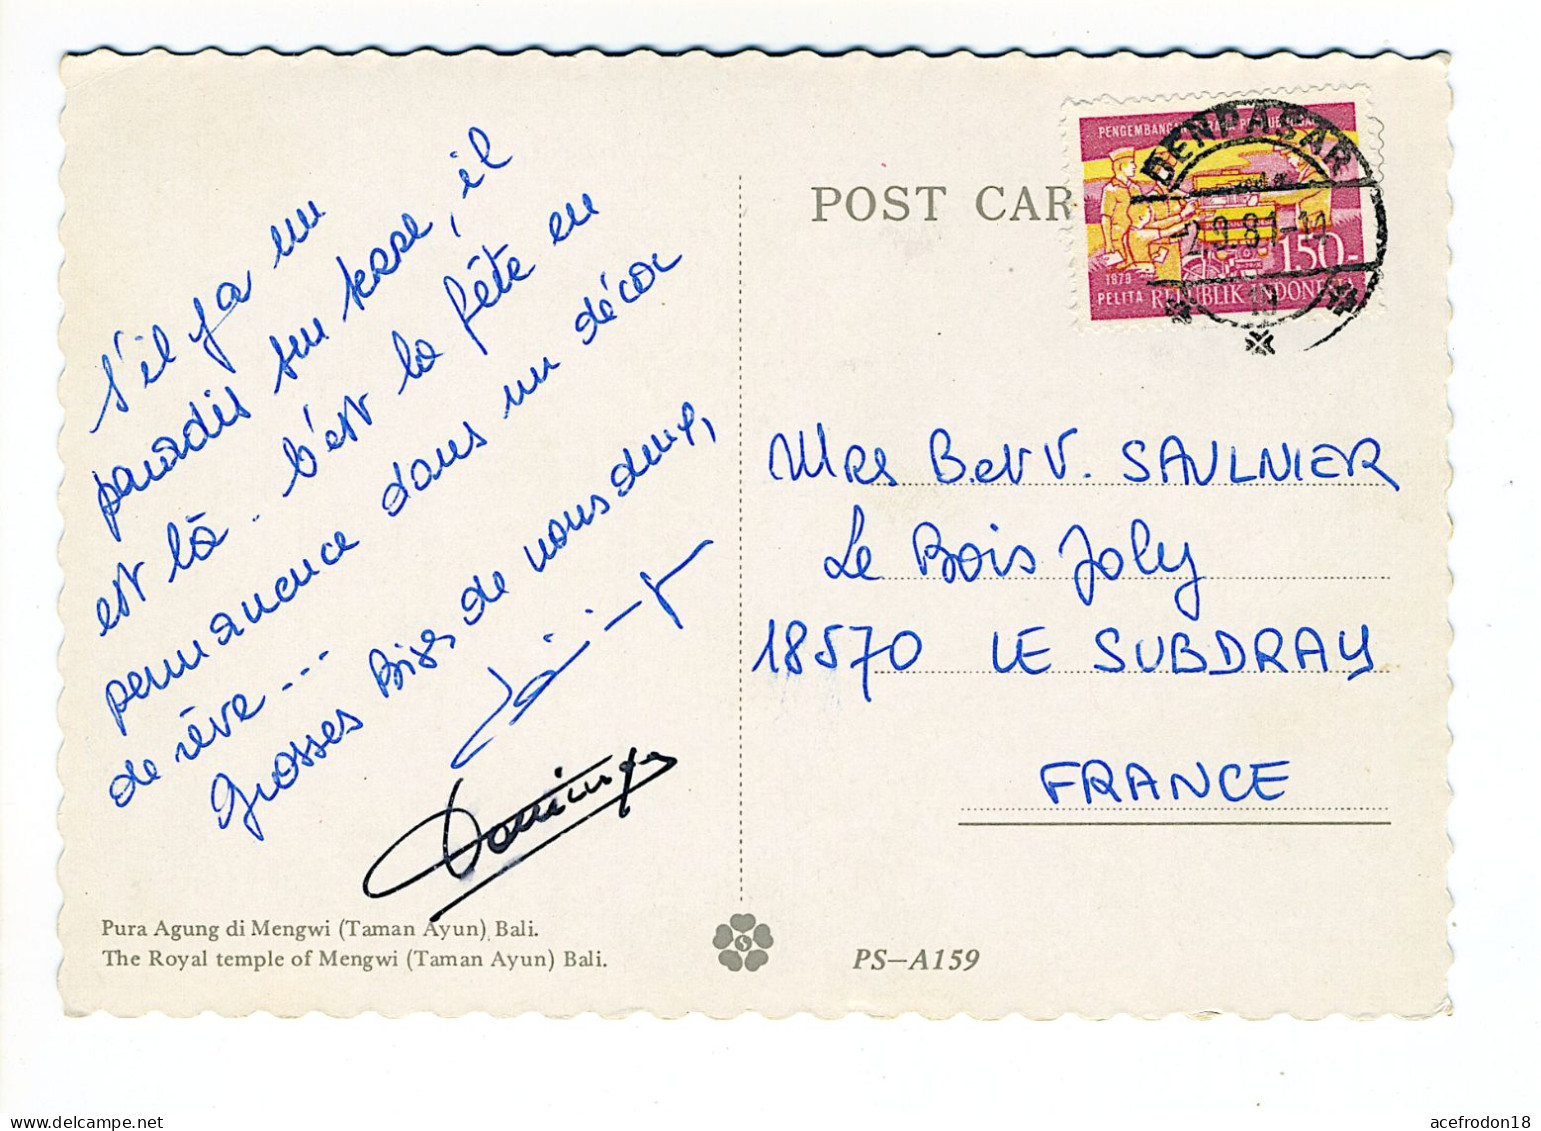 s'il y a un
paradis sur terre, il
est là. C'est la fête en
permanence dans un décor
de rêve...
Grosses Bises de nous deux,
Pura Agung di Mengwi (Taman Ayun) Bali.
The Royal temple of Mengwi (Taman Ayun) Bali.
POST CAR
DENPASAR
1979
PELITA REPUBLIK INDONESIA
150-
Mrs B. et V. SAULNIER
Le Bois Joly
18570 LE SUBDRAY
FRANCE
PS-A159
delcampe.net
acefrodon18